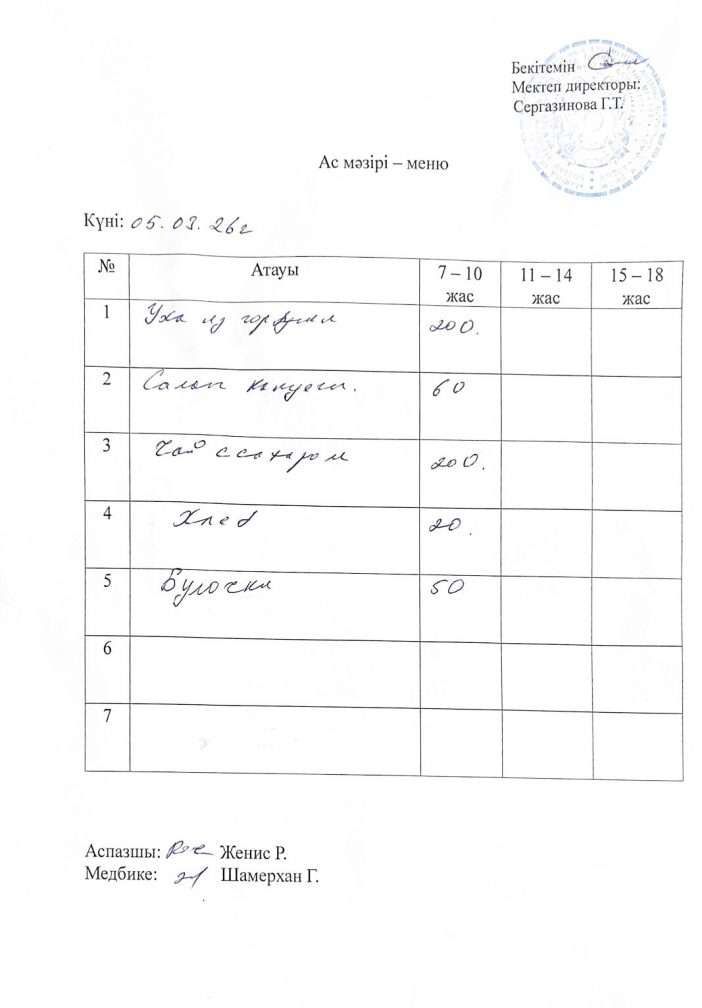 Бекітемін
Мектеп директоры:
Сергазинова Г.Т.
Ас мәзірі – меню
Күні: 05.03.26г
№ Атауы 7 – 10 жас 11 – 14 жас 15 – 18 жас
1 Уха из горбуши 200.
2 Салат капусты. 60
3 Чай с сахаром 200.
4 Хлеб 20.
5 Булочка 50
6
7
Аспазшы: Женис Р.
Медбике: Шамерхан Г.